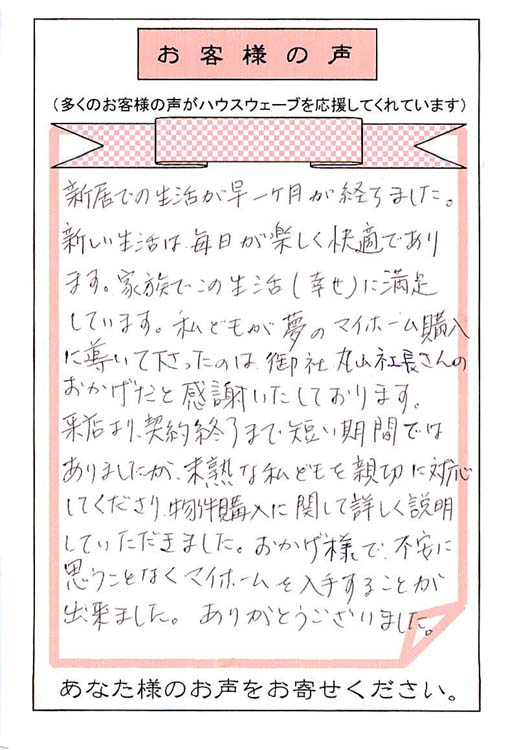 お客様の声
（多くのお客様の声がハウスウェーブを応援してくれています）
新居での生活が早一ケ月が経ちました。
新しい生活は、毎日が楽しく快適であり
ます。家族でこの生活（幸せ）に満足
しています。私どもが夢のマイホーム購入
に導いて下さったのは、御社 丸山社長さんの
おかげだと感謝いたしております。
来店より、契約終了まで短い期間では
ありましたが、未熟な私どもを親切に対応
してくださり、物件購入に関して詳しく説明
していただきました。おかげ様で、不安に
思うことなくマイホームを入手することが
出来ました。ありがとうございました。
あなた様のお声をお寄せください。